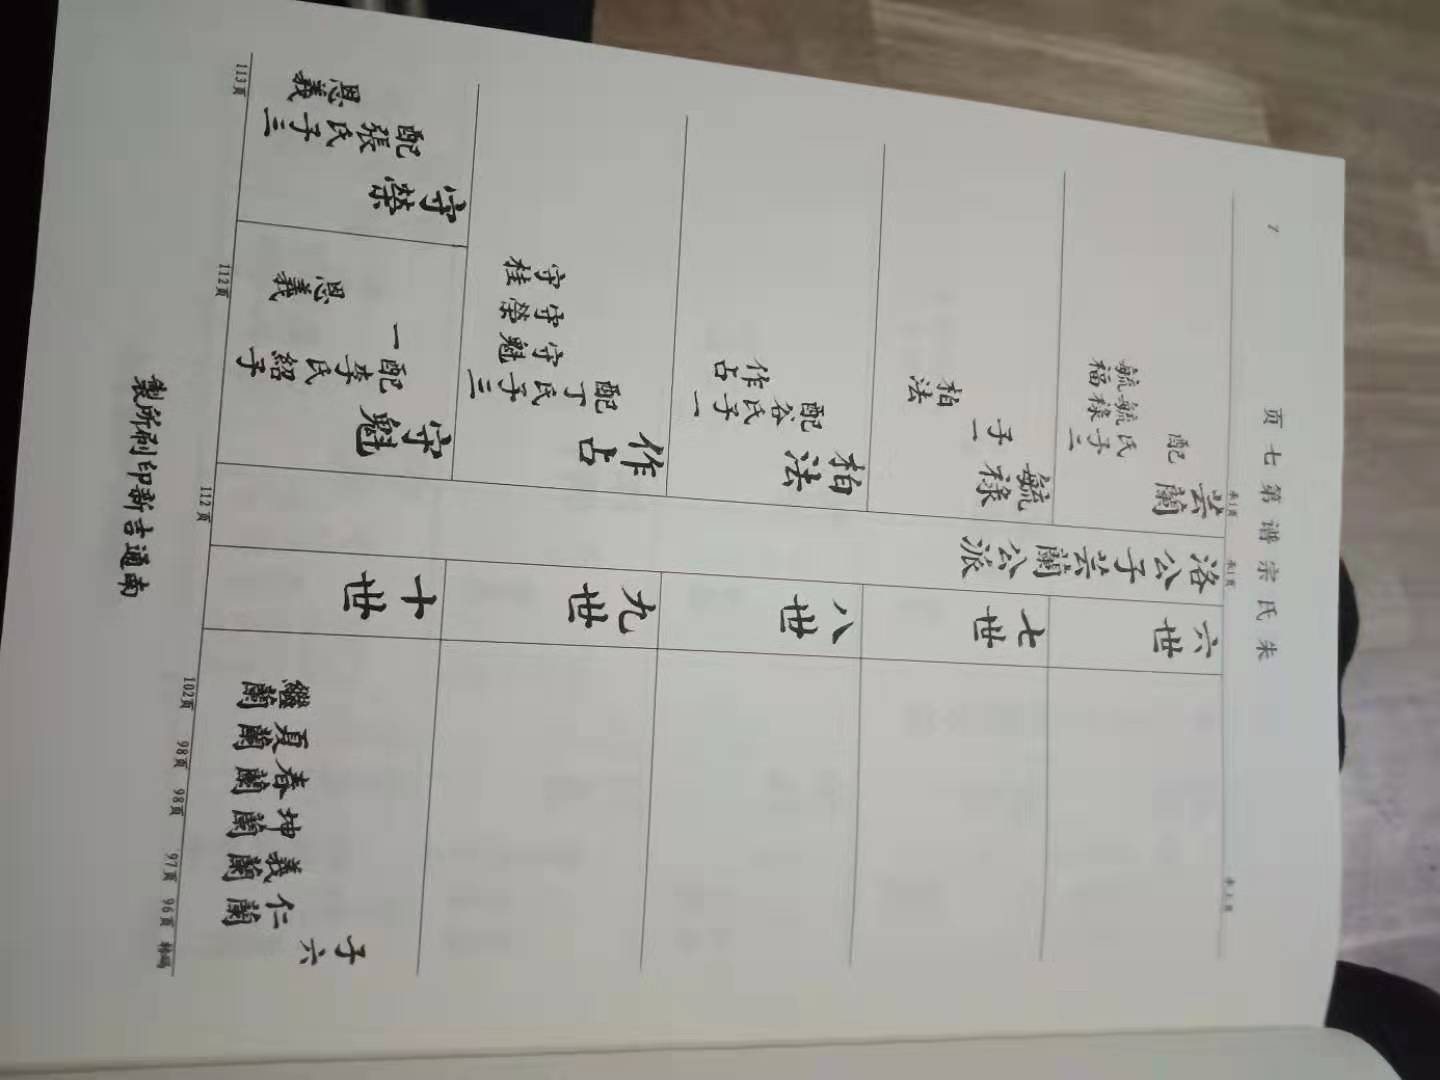 朱氏宗譜第七页
7
六世
洛公子芸蘭公派
芸蘭
配
氏子二
毓禄
毓福
七世
毓禄
子一
柏法
八世
柏法
配谷氏子一
作占
九世
作占
配丁氏子三
守魁
守榮
守桂
子六
仁蘭
義蘭
坤蘭
春蘭
夏蘭
繼蘭
十世
守魁
配李氏紹子
一
恩義
守榮
配張氏子三
恩義
96頁
97頁
98頁
98頁
102頁
112頁
112頁
113頁
南通吉新印刷所製